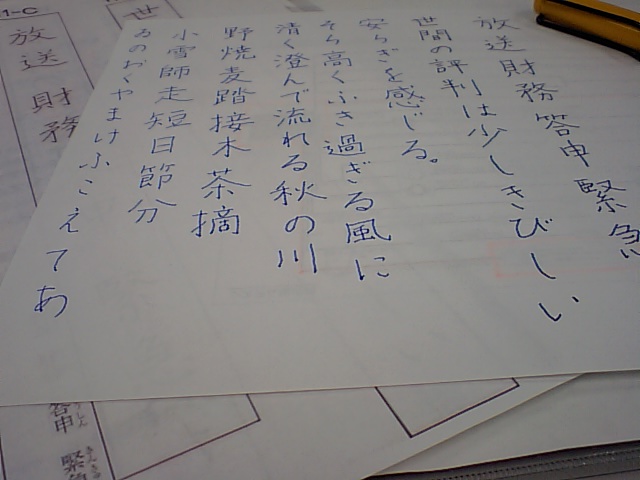 放送財務答申緊急
世間の評判は少しきびしい
安らぎを感じる。
そら高くふき過ぎる風に
清く澄んで流れる秋の川
野焼麦踏接木茶摘
小雪師走短日節分
ゐのおくやまけふこえてあ
1-C
放送財務
世
答申緊急